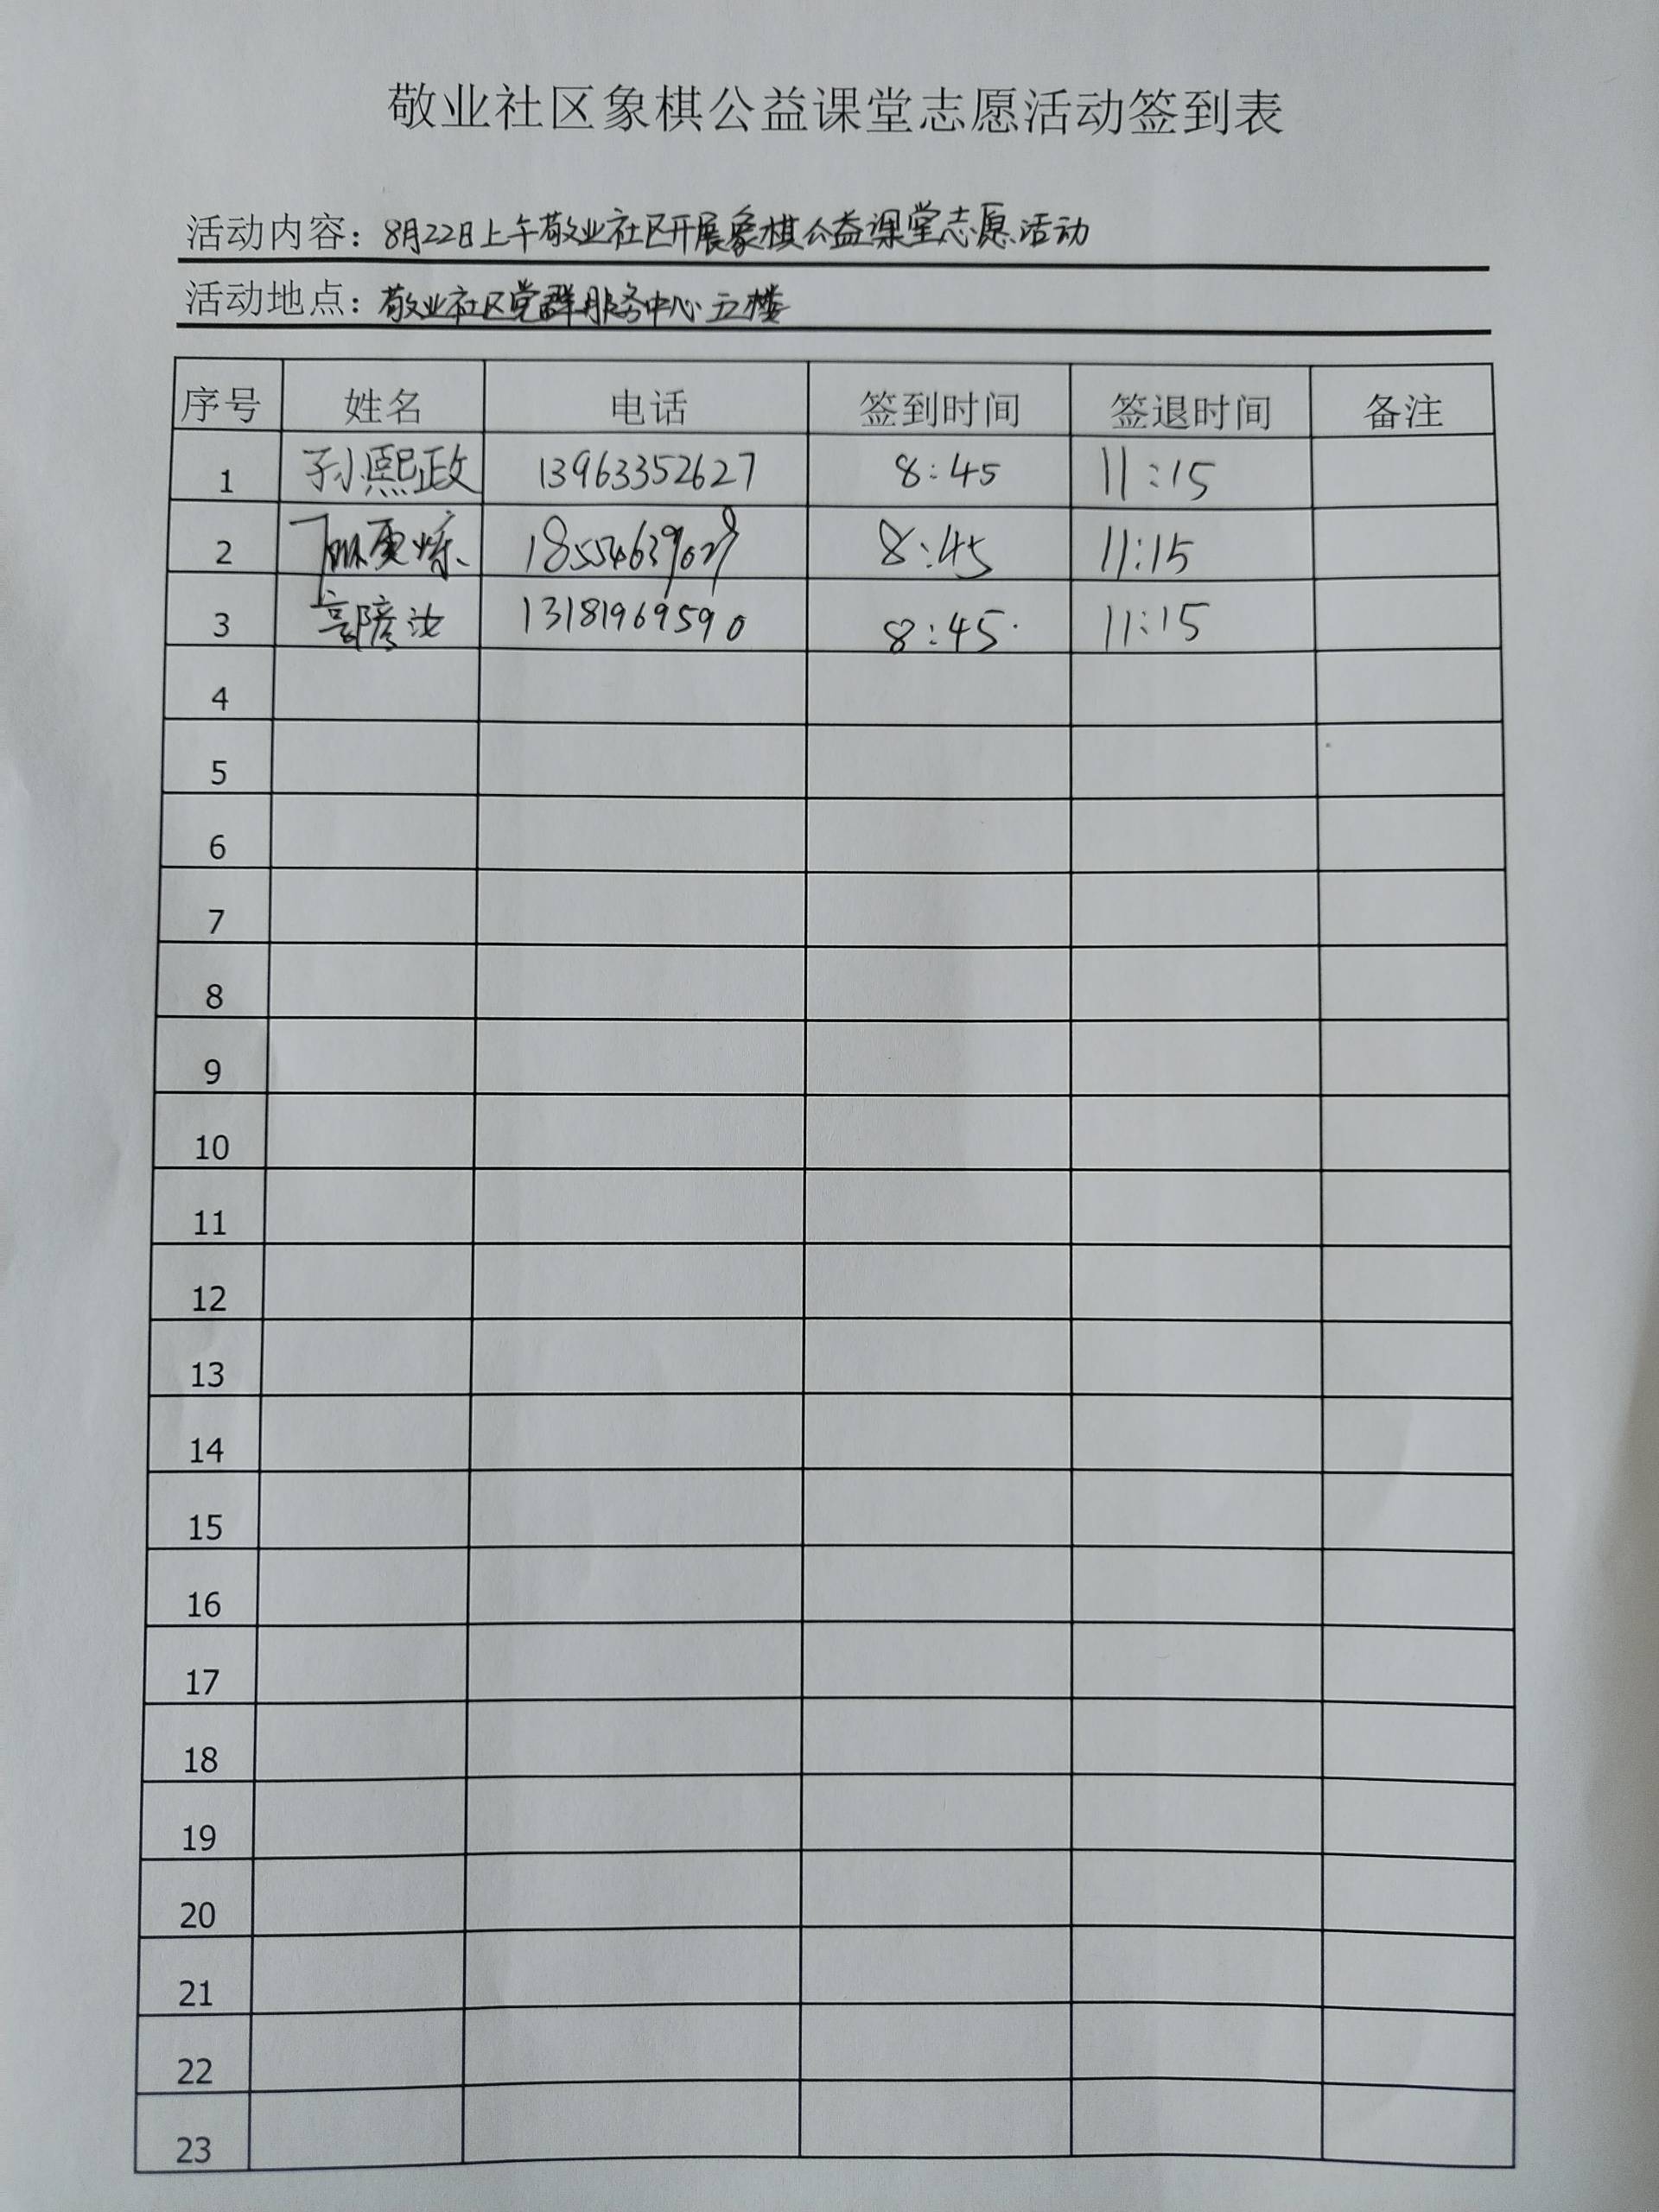 敬业社区象棋公益课堂志愿活动签到表
活动内容：8月22日上午敬业社区开展象棋公益课堂志愿活动
活动地点：敬业社区党群服务中心五楼
序号 姓名 电话 签到时间 签退时间 备注
1 孙熙政 13963352627 8:45 11:15
2 8:45 11:15
3 13181969590 8:45 11:15
4
5
6
7
8
9
10
11
12
13
14
15
16
17
18
19
20
21
22
23